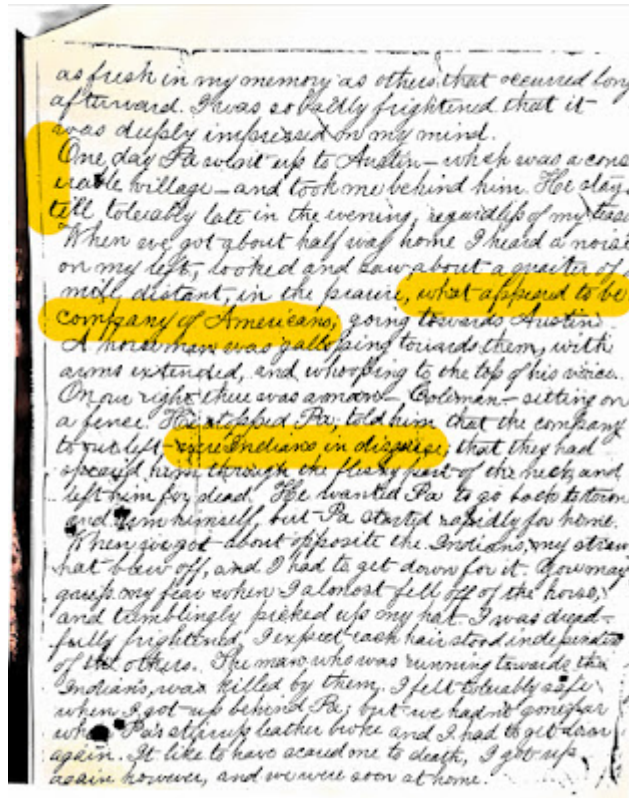 as fresh in my memory as others that occurred long
afterward. I was so badly frightened that it
was deeply impressed on my mind.
One day Pa went up to Austin – which was a cons
erable village – and took me behind him. He stay
till tolerably late in the evening, regardless of my teas
When we got about half way home I heard a noise
on my left, looked and saw about a quarter of a
mile distant, in the prairie, what appeared to be
company of Americans, going towards Austin.
A horseman was galloping towards them, with
arms extended, and whooping to the top of his voice.
On our right there was a man – Coleman – sitting on
a fence. He stopped Pa, told him that the company
to our left were Indians in disguise, that they had
speared him through the fleshy part of the neck, and
left him for dead. He wanted Pa to go back to town
and arm himself, but Pa started rapidly for home.
When we got about opposite the Indians, my straw
hat blew off, and I had to get down for it. You may
guess my fear when I alomost fell off of the horse,
and tremblingly picked up my hat. I was dread-
fully frightened, I expect each hair stood independent
of the others. The man who was running towards the
Indians, was killed by them. I felt tolerably safe
when I got up behind Pa; but we hadn't gone far
when Pa's stirrup leather broke and I had to get down
again. It like to have scared me to death, I got up
again however, and we were soon at home.